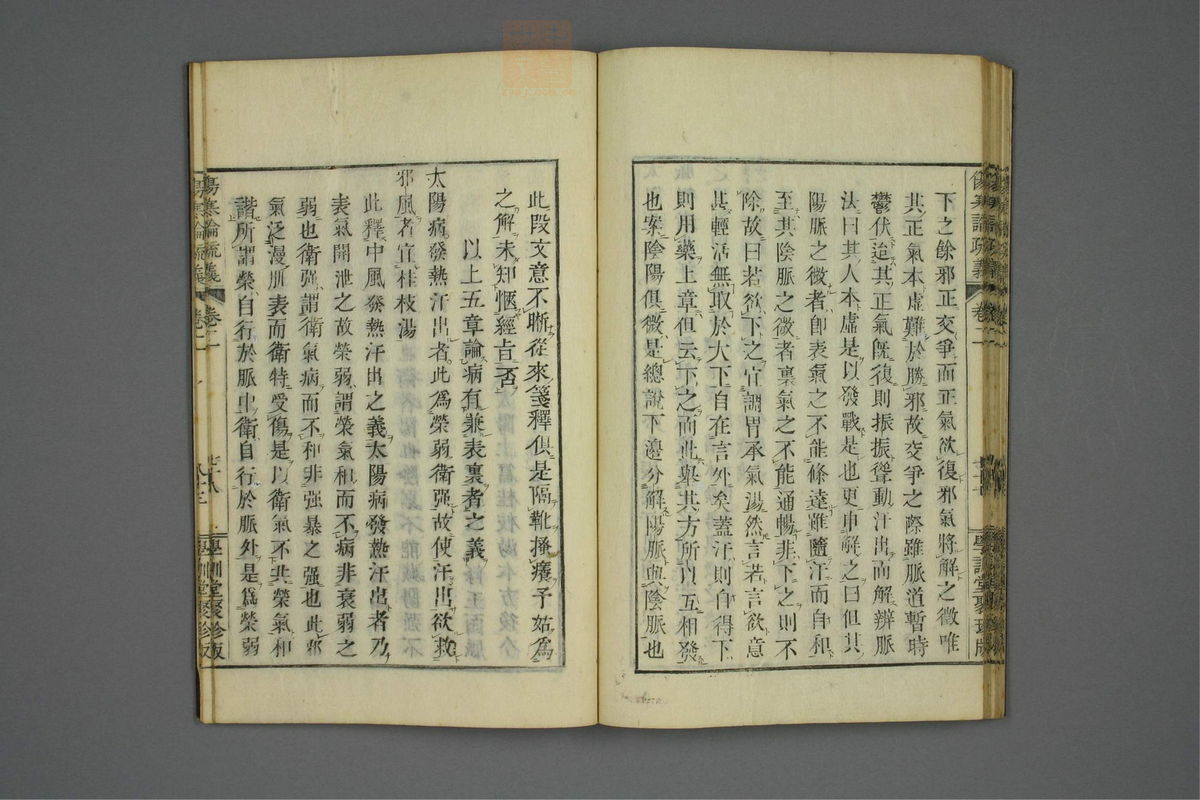 下之餘邪正交爭而正氣欲復邪氣將解之徵唯
其正氣本虛難於勝邪故交爭之際雖脈道暫時
鬱伏迨其正氣既復則振振聳動汗出而解辨脈
法曰其人本虛是以發戰是也更申解之曰但其
陽脈之微者即表氣之不能條達雖隨汗而自和
至其陰脈之微者裏氣之不能通暢非下之則不
除故曰若欲下之宜調胃承氣湯然言若言欲意
甚輕活無取於大下自在言外矣蓋汗則自得下
則用藥上章但云下之而此舉其方所以互相發
也案陰陽俱微是總說下邊分解陽脈與陰脈也
此段文意不晰從來箋釋俱是隔靴搔癢予姑爲
之解未知愜經旨否
以上五章論病有兼表裏者之義
太陽病發熱汗出者此爲榮弱衛强故使汗出欲救
邪風者宜桂枝湯
此釋中風發熱汗出之義太陽病發熱汗出者乃
表氣開泄之故榮弱謂榮氣和而不病非衰弱之
弱也衛强謂衛氣病而不和非强暴之强也此邪
氣泛漫肌表而衛特受傷是以衛氣不共榮氣和
諧所謂榮自行於脈中衛自行於脈外是爲榮弱
傷寒論疏義
卷二
學訓堂聚珍版